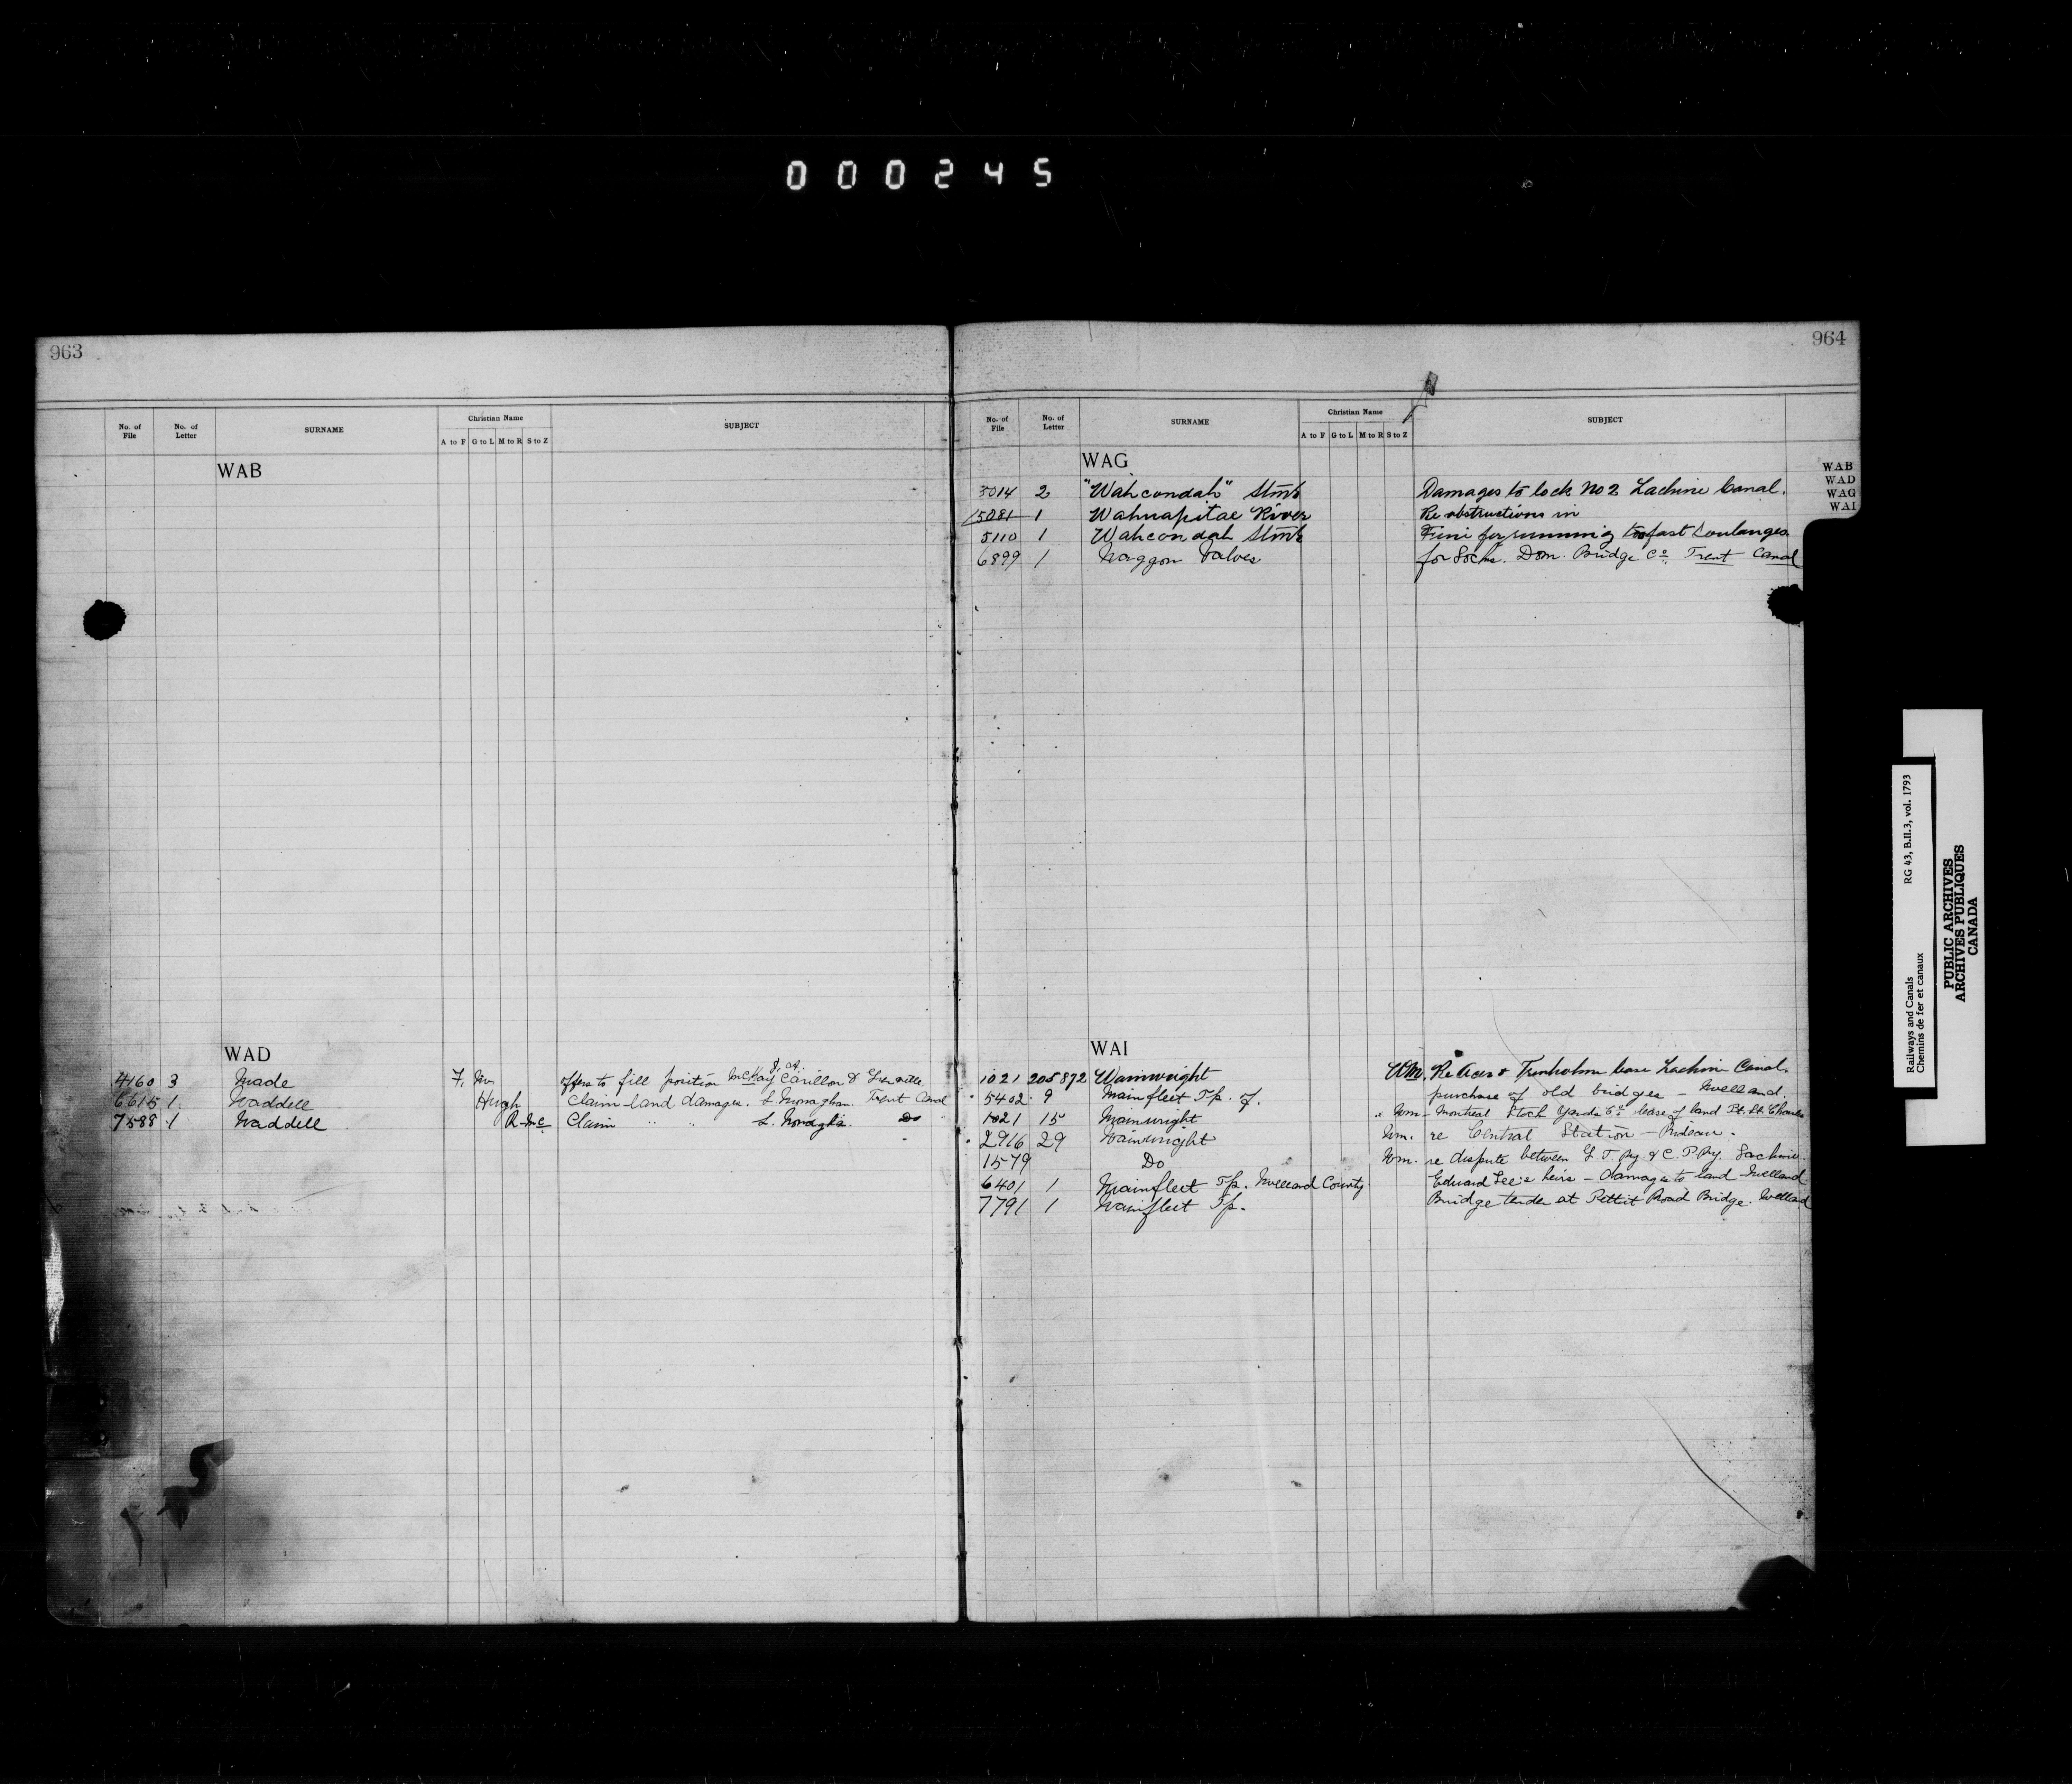 000245
963
No. of File No. of Letter SURNAME Christian Name A to F G to L M to R S to Z SUBJECT
WAB
WAD
4160 3 Wade F. Offers to fill position McKay Carillon & Grenville
6615 1 Waddell Hugh Claim land damages. S. Monaghan. Trent Canal
7588 1 Waddell R. Mc Claim " " S. Monaghn. Do
964
No. of File No. of Letter SURNAME Christian Name A to F G to L M to R S to Z SUBJECT
WAG
WAB
WAD
WAG
WAI
5014 2 "Wahcondah" Stmr Damages to lock No 2 Lachine Canal.
5081 1 Wahnapitae River Re obstructions in
5110 1 Wahcondah Stmr Fine for running too fast Soulanges
6899 1 Waggon Valves for Locks. Dom. Bridge Co. Trent Canal
WAI
1021 205872 Wainwright Wm. Re & Trenholme lease Lachine Canal.
5402 9 Wainfleet Tp. of. purchase of old bridges - Welland.
1021 15 Wainwright " Wm - Montreal Stock Yards Co. lease of land Pt. St. Charles
2916 29 Wainwright Wm. re Central Station - Rideau.
1579 Do Wm. re dispute between G.T.Ry. & C.P.Ry. Lachine
6401 1 Wainfleet Tp. Welland County Edward Lee's heirs - damages to land Welland
7791 1 Wainfleet Tp. Bridge tender at Pettit Road Bridge. Welland
Railways and Canals RG 43, B.II.3, vol. 1793
Chemins de fer et canaux
PUBLIC ARCHIVES
ARCHIVES PUBLIQUES
CANADA